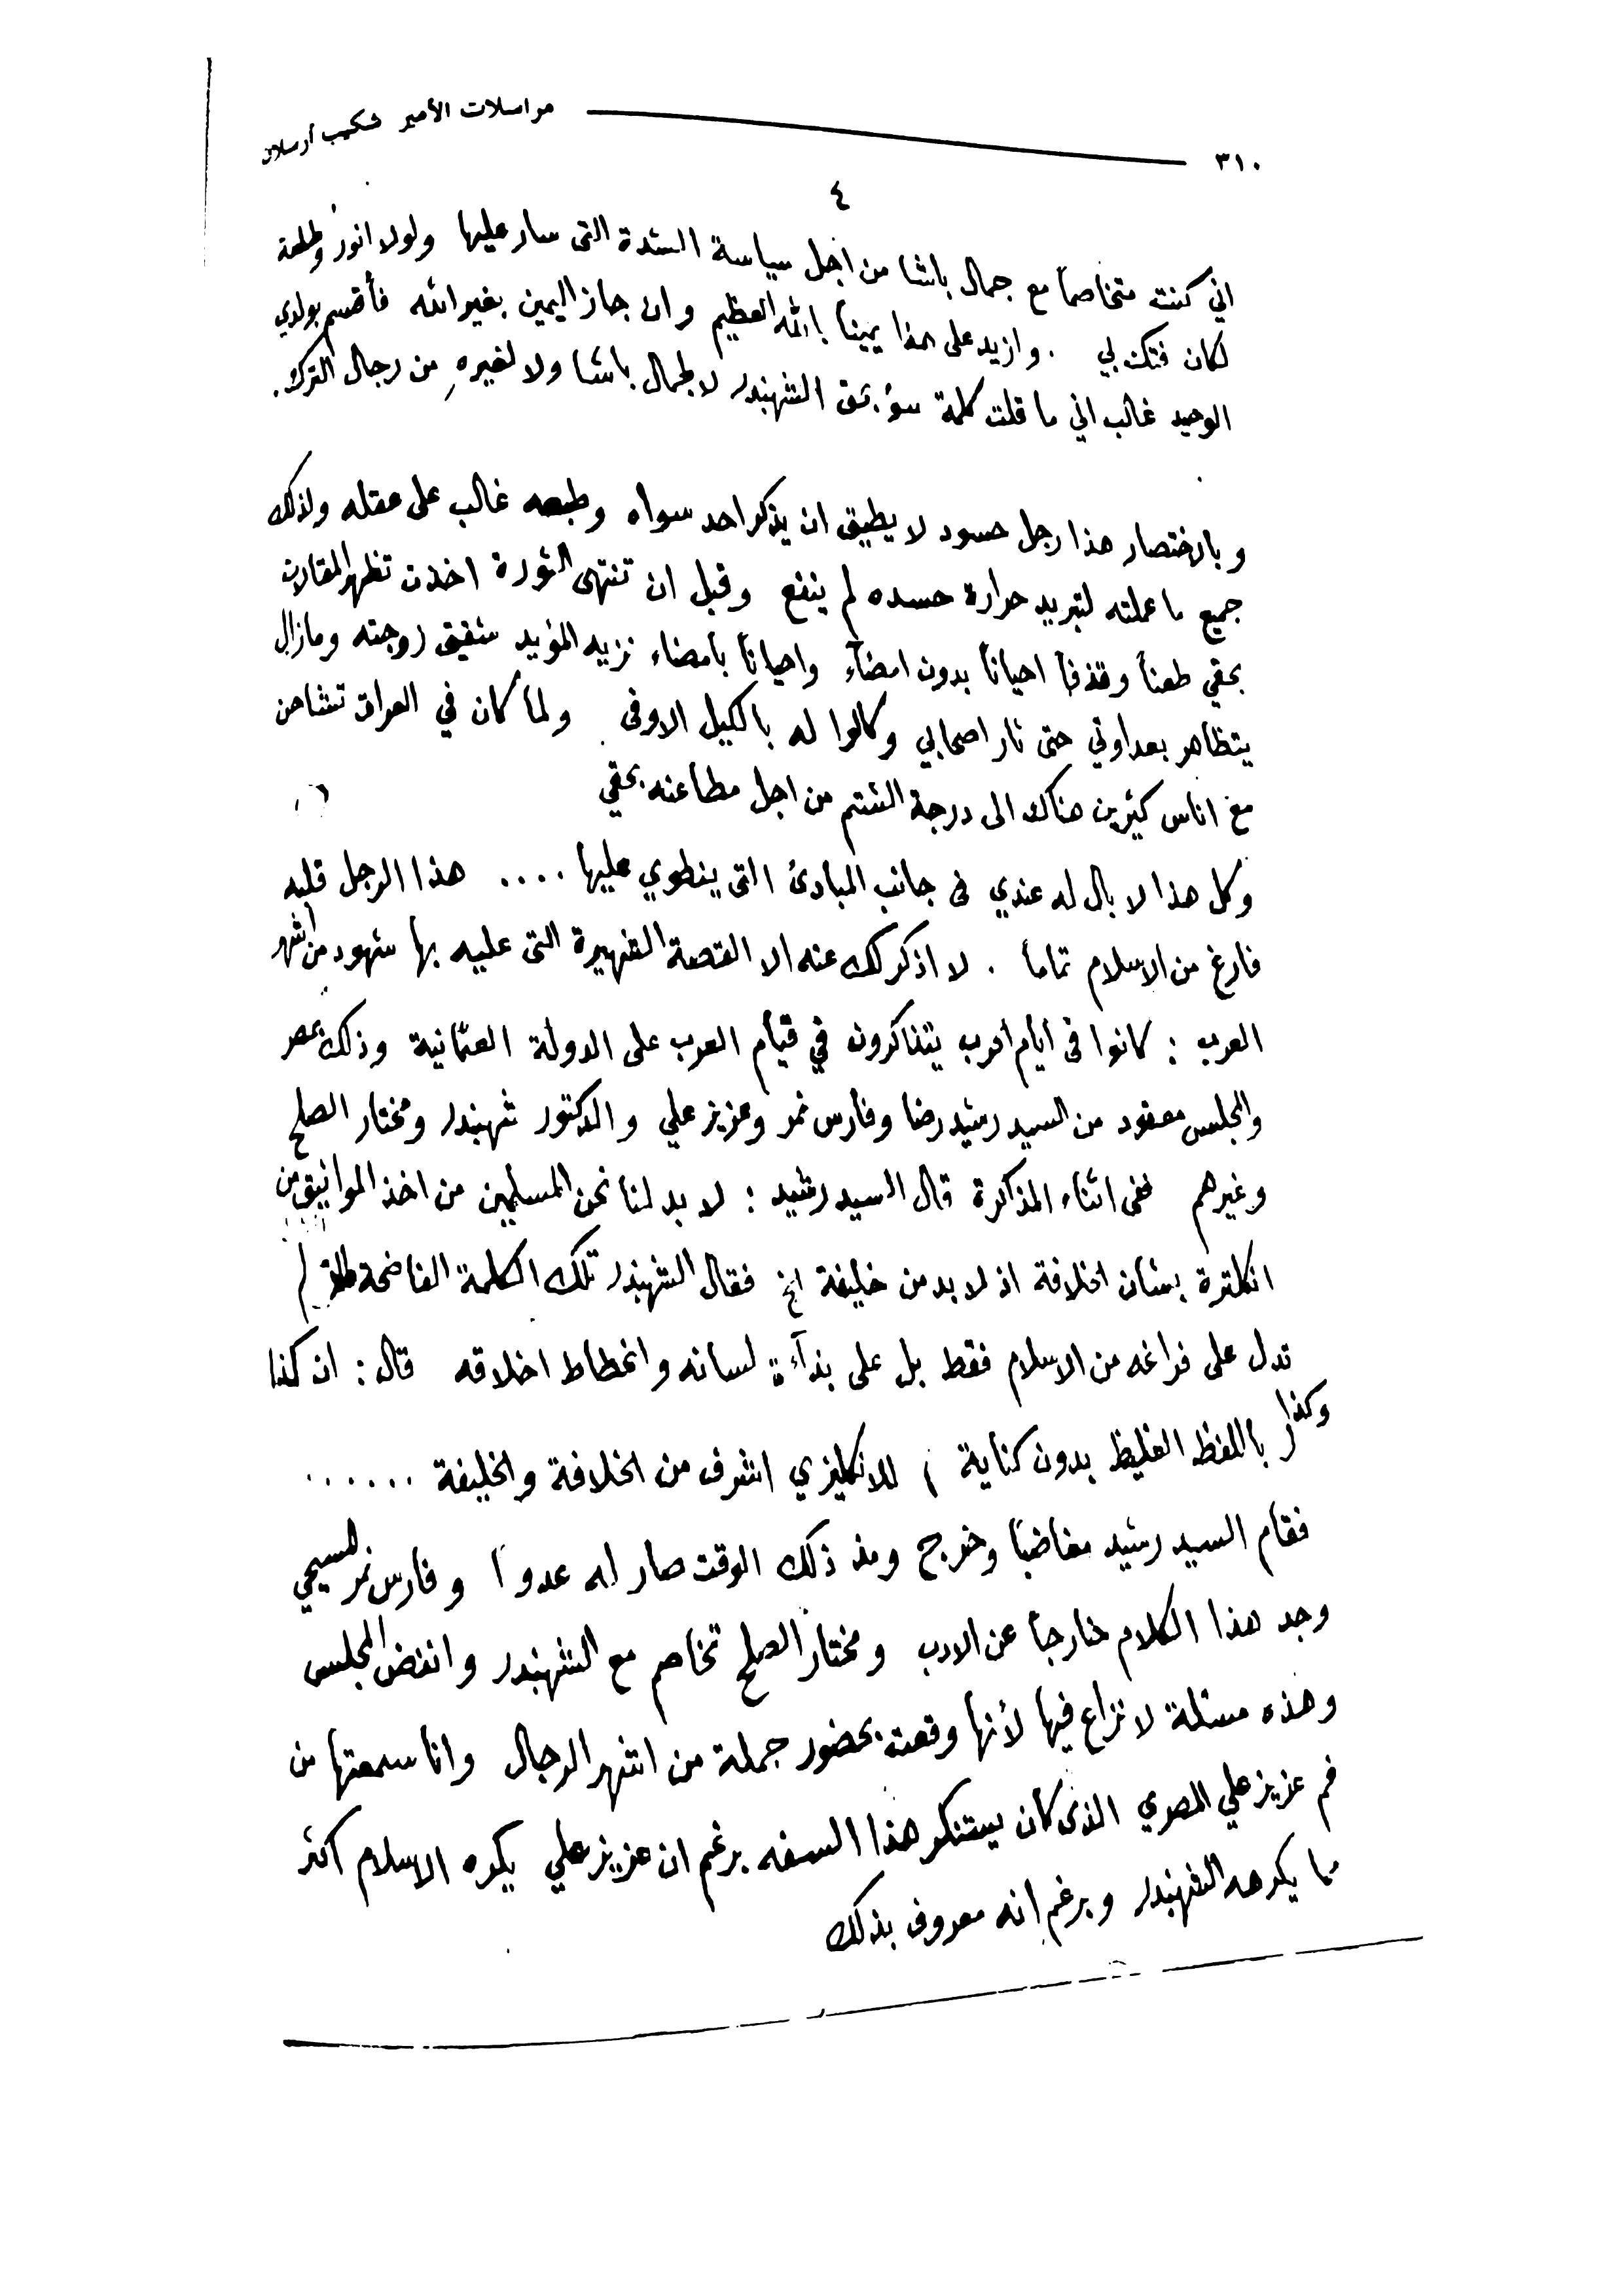 ٣١٠ مراسلات الأمير شكيب أرسلان
٤
اني كنت متخاصماً مع جمال باشا من اجل سياسة الشدة التى سار عليها ولولا انور وطلعة
لكان فتك بي . وازيد على هذا يميناً بالله العظيم وان جاز اليمين بغير الله فأقسم بولدي
الوحيد غالب اني ما قلت كلمة سوء بحق الشهبندر لا لجمال باشا ولا لغيرهِ من رجال الترك .
وبالاختصار هذا رجل حسود لا يطيق ان يذكر احد سواه وطبعه غالب على عقله ولذلك
جميع ما عملته لتبريد حرارة حسده لم ينفع وقبل ان تنتهى الثورة اخذت تظهر المقالات
بحقي طعناً وقذفاً احياناً بدون امضآء واحياناً بامضاء نزيه المؤيد شقيق زوجته ومازال
يتظاهر بعداوتي حتى ثار اصحابي وكالوا له بالكيل الاوفى ولما كان في العراق تشاحن
مع اناس كثيرين هناك الى درجة الشتم من اجل مطاعنه بحقي
وكل هذا لا بال له عندي فى جانب المبادئ التى ينطوي عليها .... هذا الرجل قلبه
فارغ من الاسلام تماماً . لا اذكر لك عنه الا القصة الشهيرة التى عليه بها شهود من اشهر
العرب : كانوا فى ايام الحرب يتذاكرون في قيام العرب على الدولة العثمانية وذلك بمصر
والمجلس معقود من السيد رشيد رضا وفارس نمر وعزيز علي والدكتور شهبندر ومختار الصلح
وغيرهم ففى اثناء المذاكرة قال السيد رشيد : لا بد لنا نحن المسلمين من اخذ المواثيق من
انكلترة بشان الخلافة اذ لا بد من خليفة الخ فقال الشهبندر تلك الكلمة الفاضحة التى لم
تدل على فراغه من الاسلام فقط بل على بذآءة لسانه وانحطاط اخلاقه قال : ان كذا
وكذا ( باللفظ الغليظ بدون كناية ) للانكليزي اشرف من الخلافة والخليفة ......
فقام السيد رشيد مغاضباً وخرج ومذ ذلك الوقت صار له عدواً وفارس نمر المسيحي
وجد هذا الكلام خارجاً عن الادب ومختار الصلح تخاصم مع الشهبندر وانفض المجلس
وهذه مسئلة لا نزاع فيها لأنها وقعت بحضور جملة من اشهر الرجال وانا سمعتها من
فم عزيز علي المصري الذى كان يستنكر هذا السفه برغم ان عزيز علي يكره الاسلام اكثر
مما يكرهه الشهبندر وبرغم انه معروف بذلك